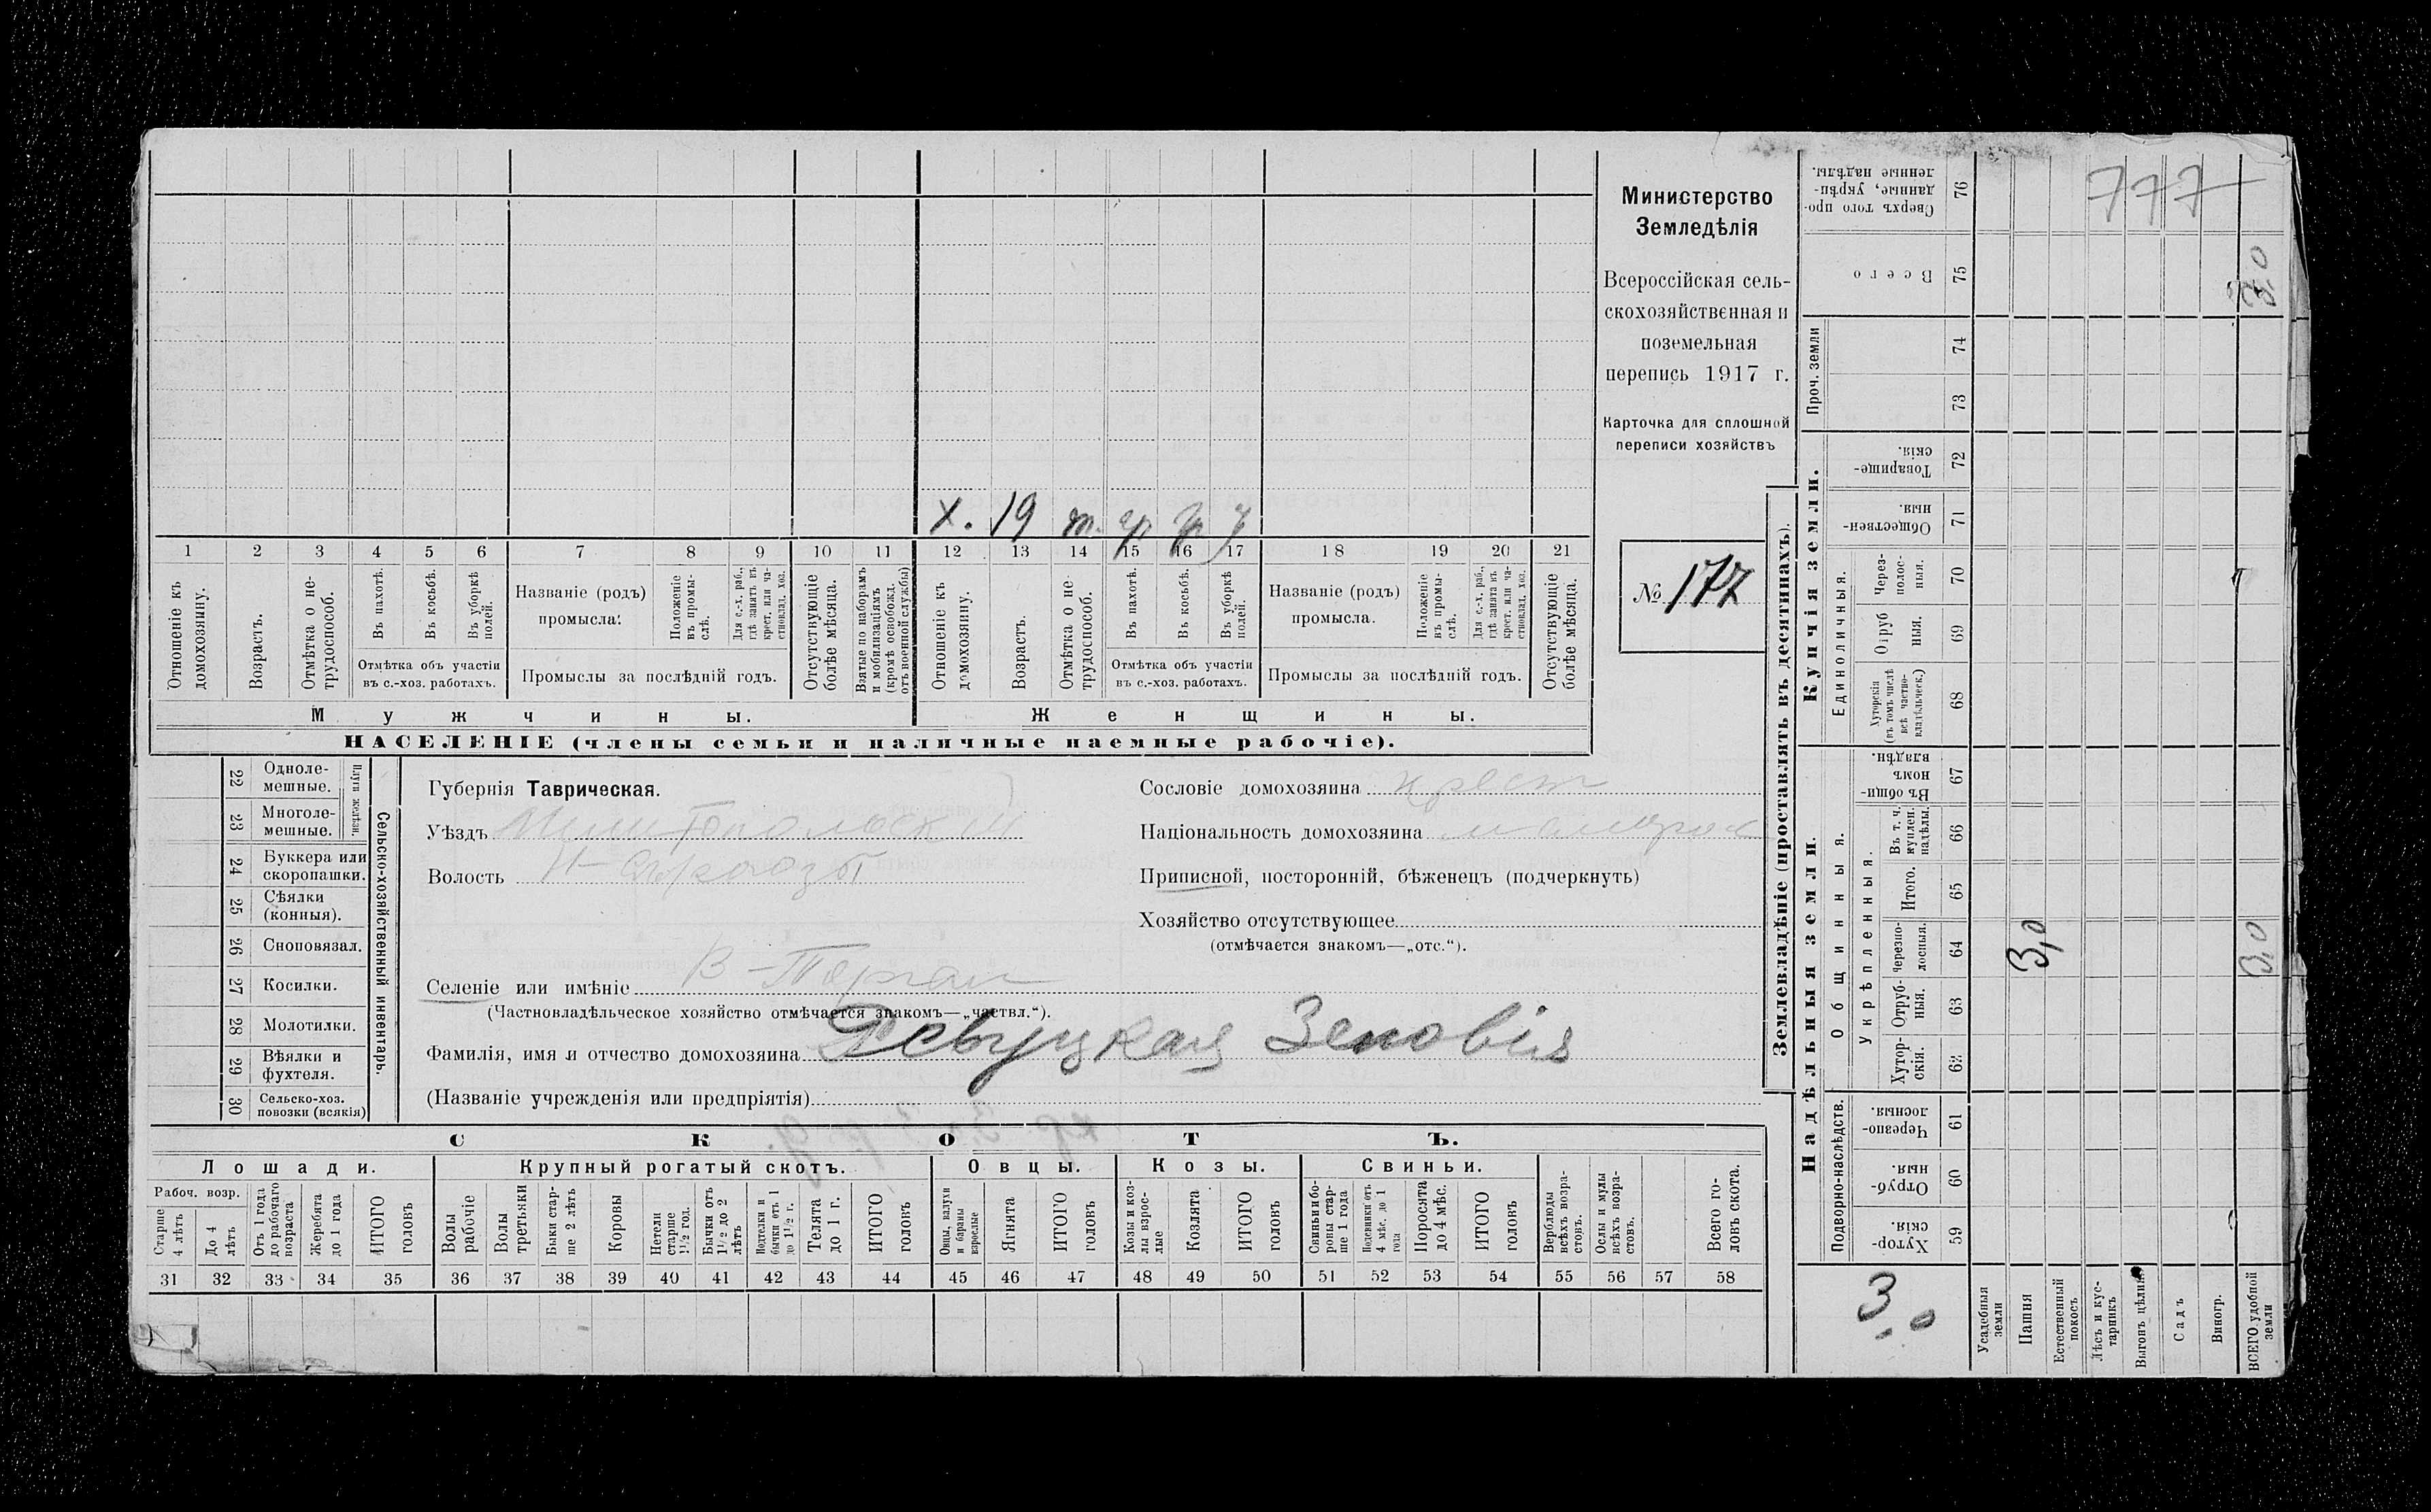 Министерство
Земледѣлія
Всероссійская сель-
скохозяйственная и
поземельная
перепись 1917 г.
Карточка для сплошной
переписи хозяйствъ
№ 177
х. 19 т. гр
1 2 3 4 5 6 7 8 9 10 11 12 13 14 15 16 17 18 19 20 21
Отношеніе къ домохозяину.
Возрастъ.
Отмѣтка о не-трудоспособ.
Въ пахотѣ.
Въ косьбѣ.
Въ уборкѣ полей.
Отмѣтка объ участіи
въ с.-хоз. работахъ.
Названіе (родъ)
промысла.
Положеніе въ промы-слѣ.
Для с.-х. раб., гдѣ занятъ въ крест. или ча-стновлад. хоз.
Промыслы за послѣдній годъ.
Отсутствующіе болѣе мѣсяца.
Взятые по наборамъ и мобилизаціямъ (кромѣ освобожд. отъ военной службы)
Отношеніе къ домохозяину.
Возрастъ.
Отмѣтка о не-трудоспособ.
Въ пахотѣ.
Въ косьбѣ.
Въ уборкѣ полей.
Отмѣтка объ участіи
въ с.-хоз. работахъ.
Названіе (родъ)
промысла.
Положеніе въ промы-слѣ.
Для с.-х. раб., гдѣ занята въ крест. или ча-стновлад. хоз.
Промыслы за послѣдній годъ.
Отсутствующіе болѣе мѣсяца.
Мужчины.
Женщины.
НАСЕЛЕНІЕ (члены семьи и наличные наемные рабочіе).
22 Одноле-мешные.
23 Многоле-мешные.
Плуги желѣзн.
24 Буккера или скоропашки.
25 Сѣялки (конныя).
26 Сноповязал.
27 Косилки.
28 Молотилки.
29 Вѣялки и фухтеля.
30 Сельско-хоз. повозки (всякія)
Сельско-хозяйственный инвентарь.
Губернія Таврическая.
Уѣздъ Мелитопольскій
Волость
Селеніе или имѣніе В-Торгаи
(Частновладѣльческое хозяйство отмѣчается знакомъ—„частвл.“).
Фамилія, имя и отчество домохозяина Ревуцкая Зеновія
(Названіе учрежденія или предпріятія)
Сословіе домохозяина крест
Національность домохозяина малорос
Приписной, посторонній, бѣженецъ (подчеркнуть)
Хозяйство отсутствующее
(отмѣчается знакомъ—„отс.“).
СКОТЪ.
Лошади.
Крупный рогатый скотъ.
Овцы.
Козы.
Свиньи.
Рабоч. возр.
Старше 4 лѣтъ
До 4 лѣтъ
Отъ 1 года до рабочаго возраста
Жеребята до 1 года
ИТОГО головъ
Волы рабочіе
Волы третьяки
Быки стар-ше 2 лѣтъ
Коровы
Нетели старше 1½ год.
Бычки отъ 1½ до 2 лѣтъ
Подтелки и бычки отъ 1 до 1½ г.
Телята до 1 г.
ИТОГО головъ
Овцы, валухи и бараны взрослые
Ягнята
ИТОГО головъ
Козы и коз-лы взрос-лые
Козлята
ИТОГО головъ
Свиньи и бо-ровы стар-ше 1 года
Подсвинки отъ 4 мѣс. до 1 года
Поросята до 4 мѣс.
ИТОГО головъ
Верблюды всѣхъ возра-стовъ.
Ослы и мулы всѣхъ возра-стовъ.
Всего го-ловъ скота.
31 32 33 34 35 36 37 38 39 40 41 42 43 44 45 46 47 48 49 50 51 52 53 54 55 56 57 58
Землевладѣніе (проставлять въ десятинахъ).
Надѣльныя земли.
Купчія земли.
Проч. земли
Подворно-наслѣдств.
Общинныя.
Укрѣпленныя.
Единоличныя.
Сверхъ того про-данные, укрѣп-ленные надѣлы. 76
Всего 75
74
73
Товарище-скія. 72
Обществен-ныя. 71
Через-полос-ныя. 70
Отруб ныя. 69
Хуторскія (въ томъ числѣ всѣ частно-владѣльческ.) 68
Въ общи-номъ владѣн. 67
Въ т. ч. куплен. надѣлы. 66
Итого. 65
Черезпо-лосныя. 64
Отруб-ныя. 63
Хутор-скія. 62
Черезпо-лосныя. 61
Отруб-ныя. 60
Хутор-скія. 59
777
3,0
3,0
3,0
3,0
Усадебныя земли
Пашня
Естественный покосъ
Лѣсъ и кус-тарникъ
Выгонъ цѣлина
Садъ
Виногр.
ВСЕГО удобной земли